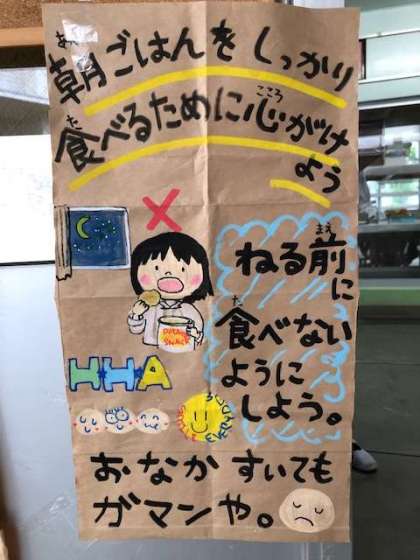 朝ごはんを しっかり
食べるために心がけ
よう
ねる前に
食べない
ように
しよう。
SNACK
HHA
おなか すいても
ガマンや。